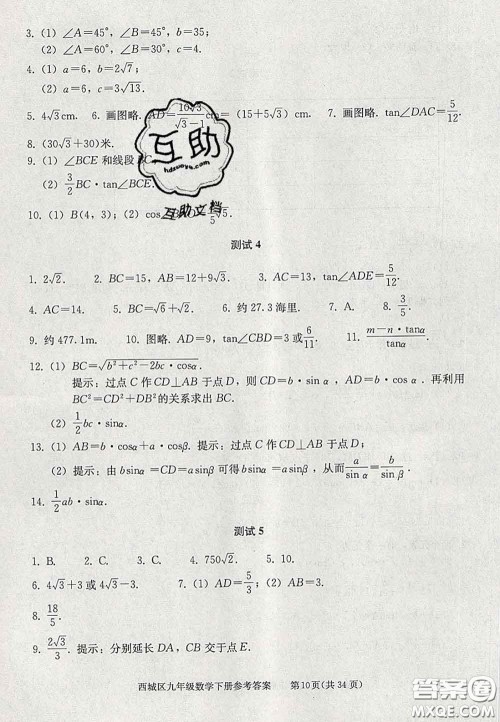 3. (1) ∠A=45°, ∠B=45°, b=35;
(2) ∠A=60°, ∠B=30°, c=4.
4. (1) a=6, b=2√7;
(2) a=6, c=3√13.
5. 4√3 cm. 6. 画图略. AD=10√3/(√3-1) cm=(15+5√3)cm. 7. 画图略. tan∠DAC=5/12.
8. (30√3+30)米.
9. (1) ∠BCE 和线段
(2) 3/2 BC·tan∠BCE.
10. (1) B(4, 3); (2) cos
互助
hdzuoye.com
互助文档
测试 4
1. 2√2. 2. BC=15, AB=12+9√3. 3. AC=13, tan∠ADE=5/12.
4. AC=14. 5. BC=√6+√2. 6. 约 27.3 海里. 7. A. 8. 3/5.
9. 约 477.1m. 10. 图略. AD=9, tan∠CBD=3 或 6/11. 11. (m-n·tanα)/tanα.
12. (1) BC=√(b²+c²-2bc·cosα).
提示：过点 C 作 CD⊥AB 于点 D，则 CD=b·sin α，AD=b·cos α. 再利用
BC²=CD²+DB² 的关系求出 BC.
(2) 1/2 bc·sinα.
13. (1) AB=b·cosα+a·cosβ. 提示：过点 C 作 CD⊥AB 于点 D;
(2) 提示：由 b sinα=CD=a sinβ 可得 b sinα=a sinβ，从而 a/sinα=b/sinβ.
14. 1/2 ab·sinα.
测试 5
1. B. 2. C. 3. C. 4. 750√2. 5. 10.
6. 4√3+3 或 4√3-3. 7. (1) AD=5/3; (2) AB=3.
8. 18/5.
9. 2√3/3. 提示：分别延长 DA，CB 交于点 E.
西城区九年级数学下册参考答案 第10页(共34页)
答案圈
MXQE.COM